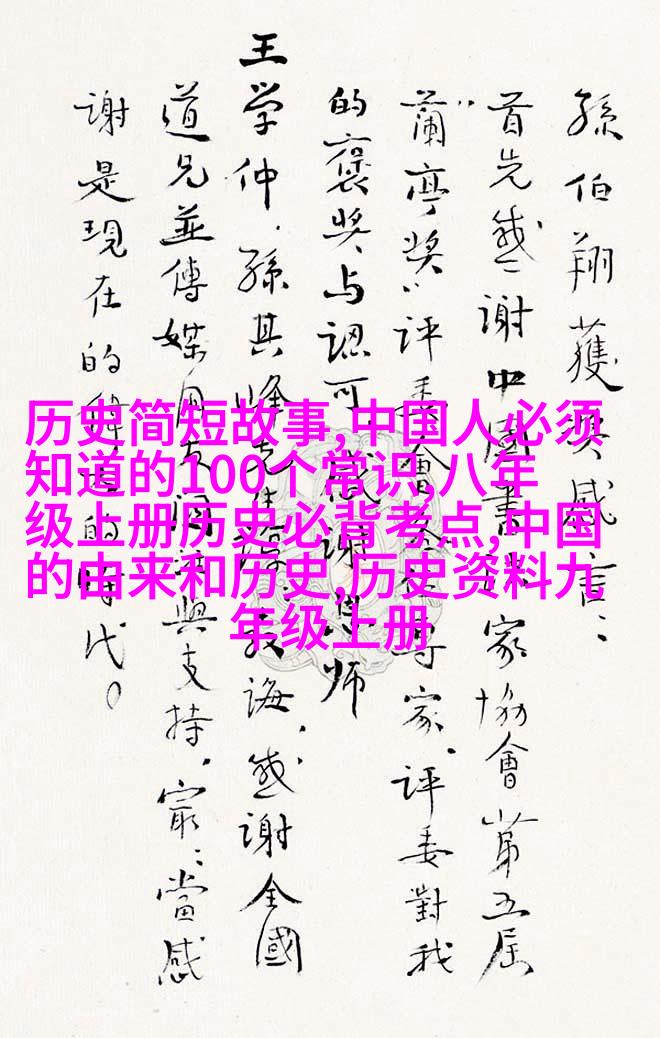 孫伯翔獲奖感言：
首先感謝中國書家協會第五届
“蘭亭奖”评委會專家.评委對我
的褒奖与認可,感謝師
王学仲.孫其峰先生教诲,感謝全國
道兄並傳媒朋友與支持.最當感
謝是現在的的時代。
历史简短故事,中国人必须
知道的100个常识,八年
级上册历史必背考点,中国
的由来和历史,历史资料九
年级上册